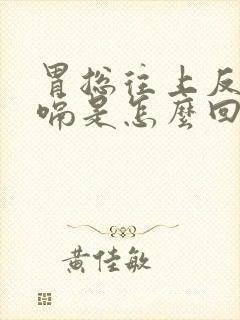 胃総往上反
嗝是怎麼回
黄佳敏